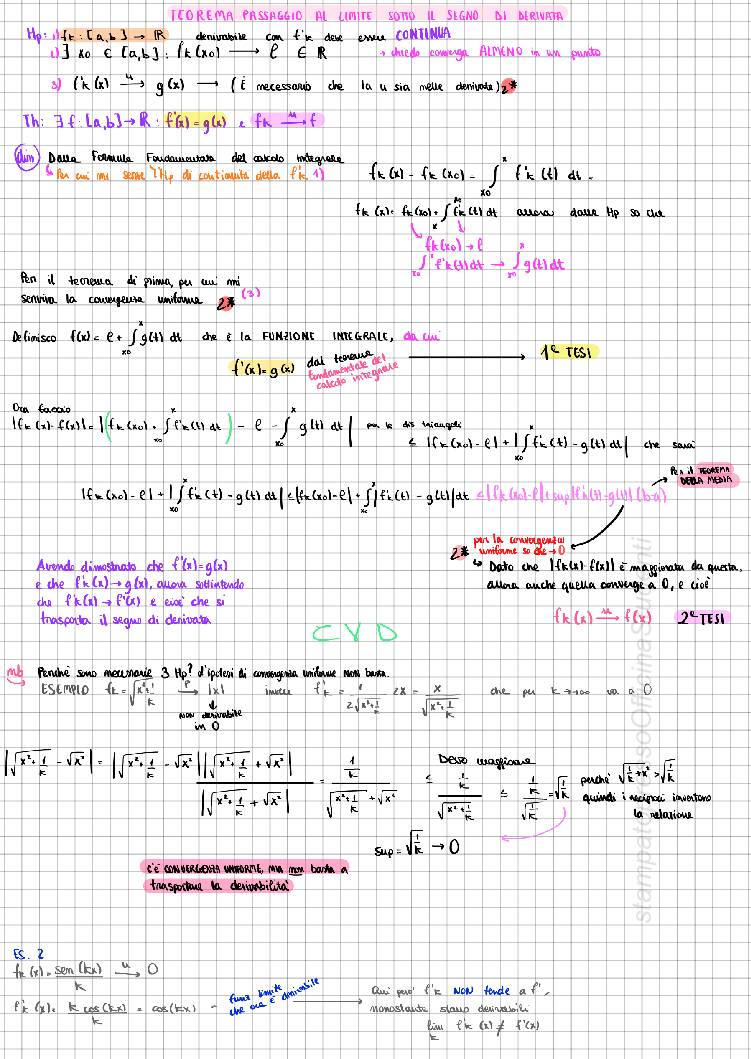 TEOREMA PASSAGGIO AL LIMITE SOTTO IL SEGNO DI DERIVATA
Hp: 1) fk: [a,b] → ℝ derivabile con f'k deve essere CONTINUA
2) ∃ x0 ∈ [a,b] : fk(x0) → ℓ ∈ ℝ → chiedo converga ALMENO in un punto
3) f'k(x) →u g(x) → (È necessario che la u sia nelle derivate) 2*
Th: ∃ f: [a,b] → ℝ : f'(x) = g(x) e fk →u f
dim) Dalla Formula Fondamentale del calcolo integrale
↳ Per cui mi serve l'Hp di continuità della f'k 1)
fk(x) - fk(x0) = ∫x0^x f'k(t) dt
fk(x) = fk(x0) + ∫ f'k(t) dt allora dalle Hp so che
fk(x0) → ℓ
∫x0^x f'k(t) dt → ∫x0^x g(t) dt
Per il teorema di prima, per cui mi
serviva la convergenza uniforme 2* (3)
Definisco f(x) = ℓ + ∫x0^x g(t) dt che è la FUNZIONE INTEGRALE, da cui
f'(x) = g(x) dal teorema fondamentale del calcolo integrale → 1ª TESI
Ora faccio
|fk(x) - f(x)| = |(fk(x0) + ∫x0^x f'k(t) dt) - ℓ - ∫x0^x g(t) dt| per la dis triangoli
≤ |fk(x0) - ℓ| + |∫x0^x f'k(t) - g(t) dt| che sarà
|fk(x0) - ℓ| + |∫x0^x f'k(t) - g(t) dt| ≤ |fk(x0) - ℓ| + ∫x0^x |f'k(t) - g(t)| dt ≤ |fk(x0) - ℓ| + sup|f'k(t) - g(t)| (b-a)
Per il TEOREMA
DELLA MEDIA
2* per la convergenza
uniforme so che → 0
↳ Dato che |fk(x) - f(x)| è maggiorata da questa,
allora anche quella converge a 0, e cioè
fk(x) →u f(x) 2ª TESI
Avendo dimostrato che f'(x) = g(x)
e che f'k(x) → g(x), allora sottintendo
che f'k(x) → f'(x) e cioè che si
trasporta il segno di derivata
CVD
nb Perché sono necessarie 3 Hp? l'ipotesi di convergenza uniforme NON basta.
ESEMPIO fk = √(x²+1/k) →p |x| invece f'k = 1/(2√(x²+1/k)) 2x = x/√(x²+1/k) che per k → +∞ va a 0
↓
NON derivabile
in 0
|√(x²+1/k) - √x²| = |√(x²+1/k) - √x²| |√(x²+1/k) + √x²| / |√(x²+1/k) + √x²| = (1/k)/(√(x²+1/k) + √x²) ≤ (1/k)/√(x²+1/k) ≤ (1/k)/√(1/k) = √(1/k)
Devo maggiorare
perché √(1/k + x²) > √(1/k)
quindi i reciproci invertono
la relazione
sup = √(1/k) → 0
c'è CONVERGENZA UNIFORME, MA non basta a
trasportare la derivabilità
ES. 2
fk(x) = sen(kx)/k →u 0
f'k(x) = k cos(kx)/k = cos(kx) - funz limite che ora è derivabile →
Qui però f'k NON tende a f',
nonostante siano derivabili
lim k f'k(x) ≠ f'(x)